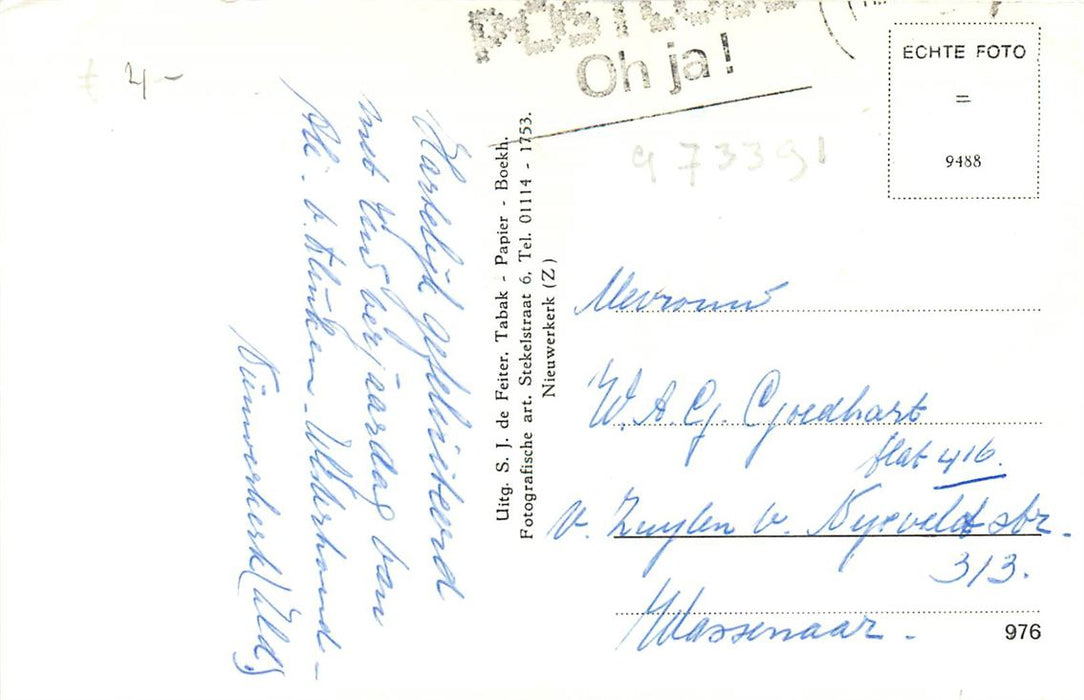 POSTCODE
Oh ja!
€ 4,-
ECHTE FOTO
=
9488
973391
Hartelijk gefeliciteerd
met Uw verjaardag van
Nieuwerkerk (Zld)
Uitg. S. J. de Feiter, Tabak - Papier - Boekh.
Fotografische art. Stekelstraat 6, Tel. 01114 - 1753.
Nieuwerkerk (Z)
Mevrouw
W.A.G. Goedhart
flat 416.
v. Zuylen v. Nyeveldt str.
313.
Wassenaar.
976